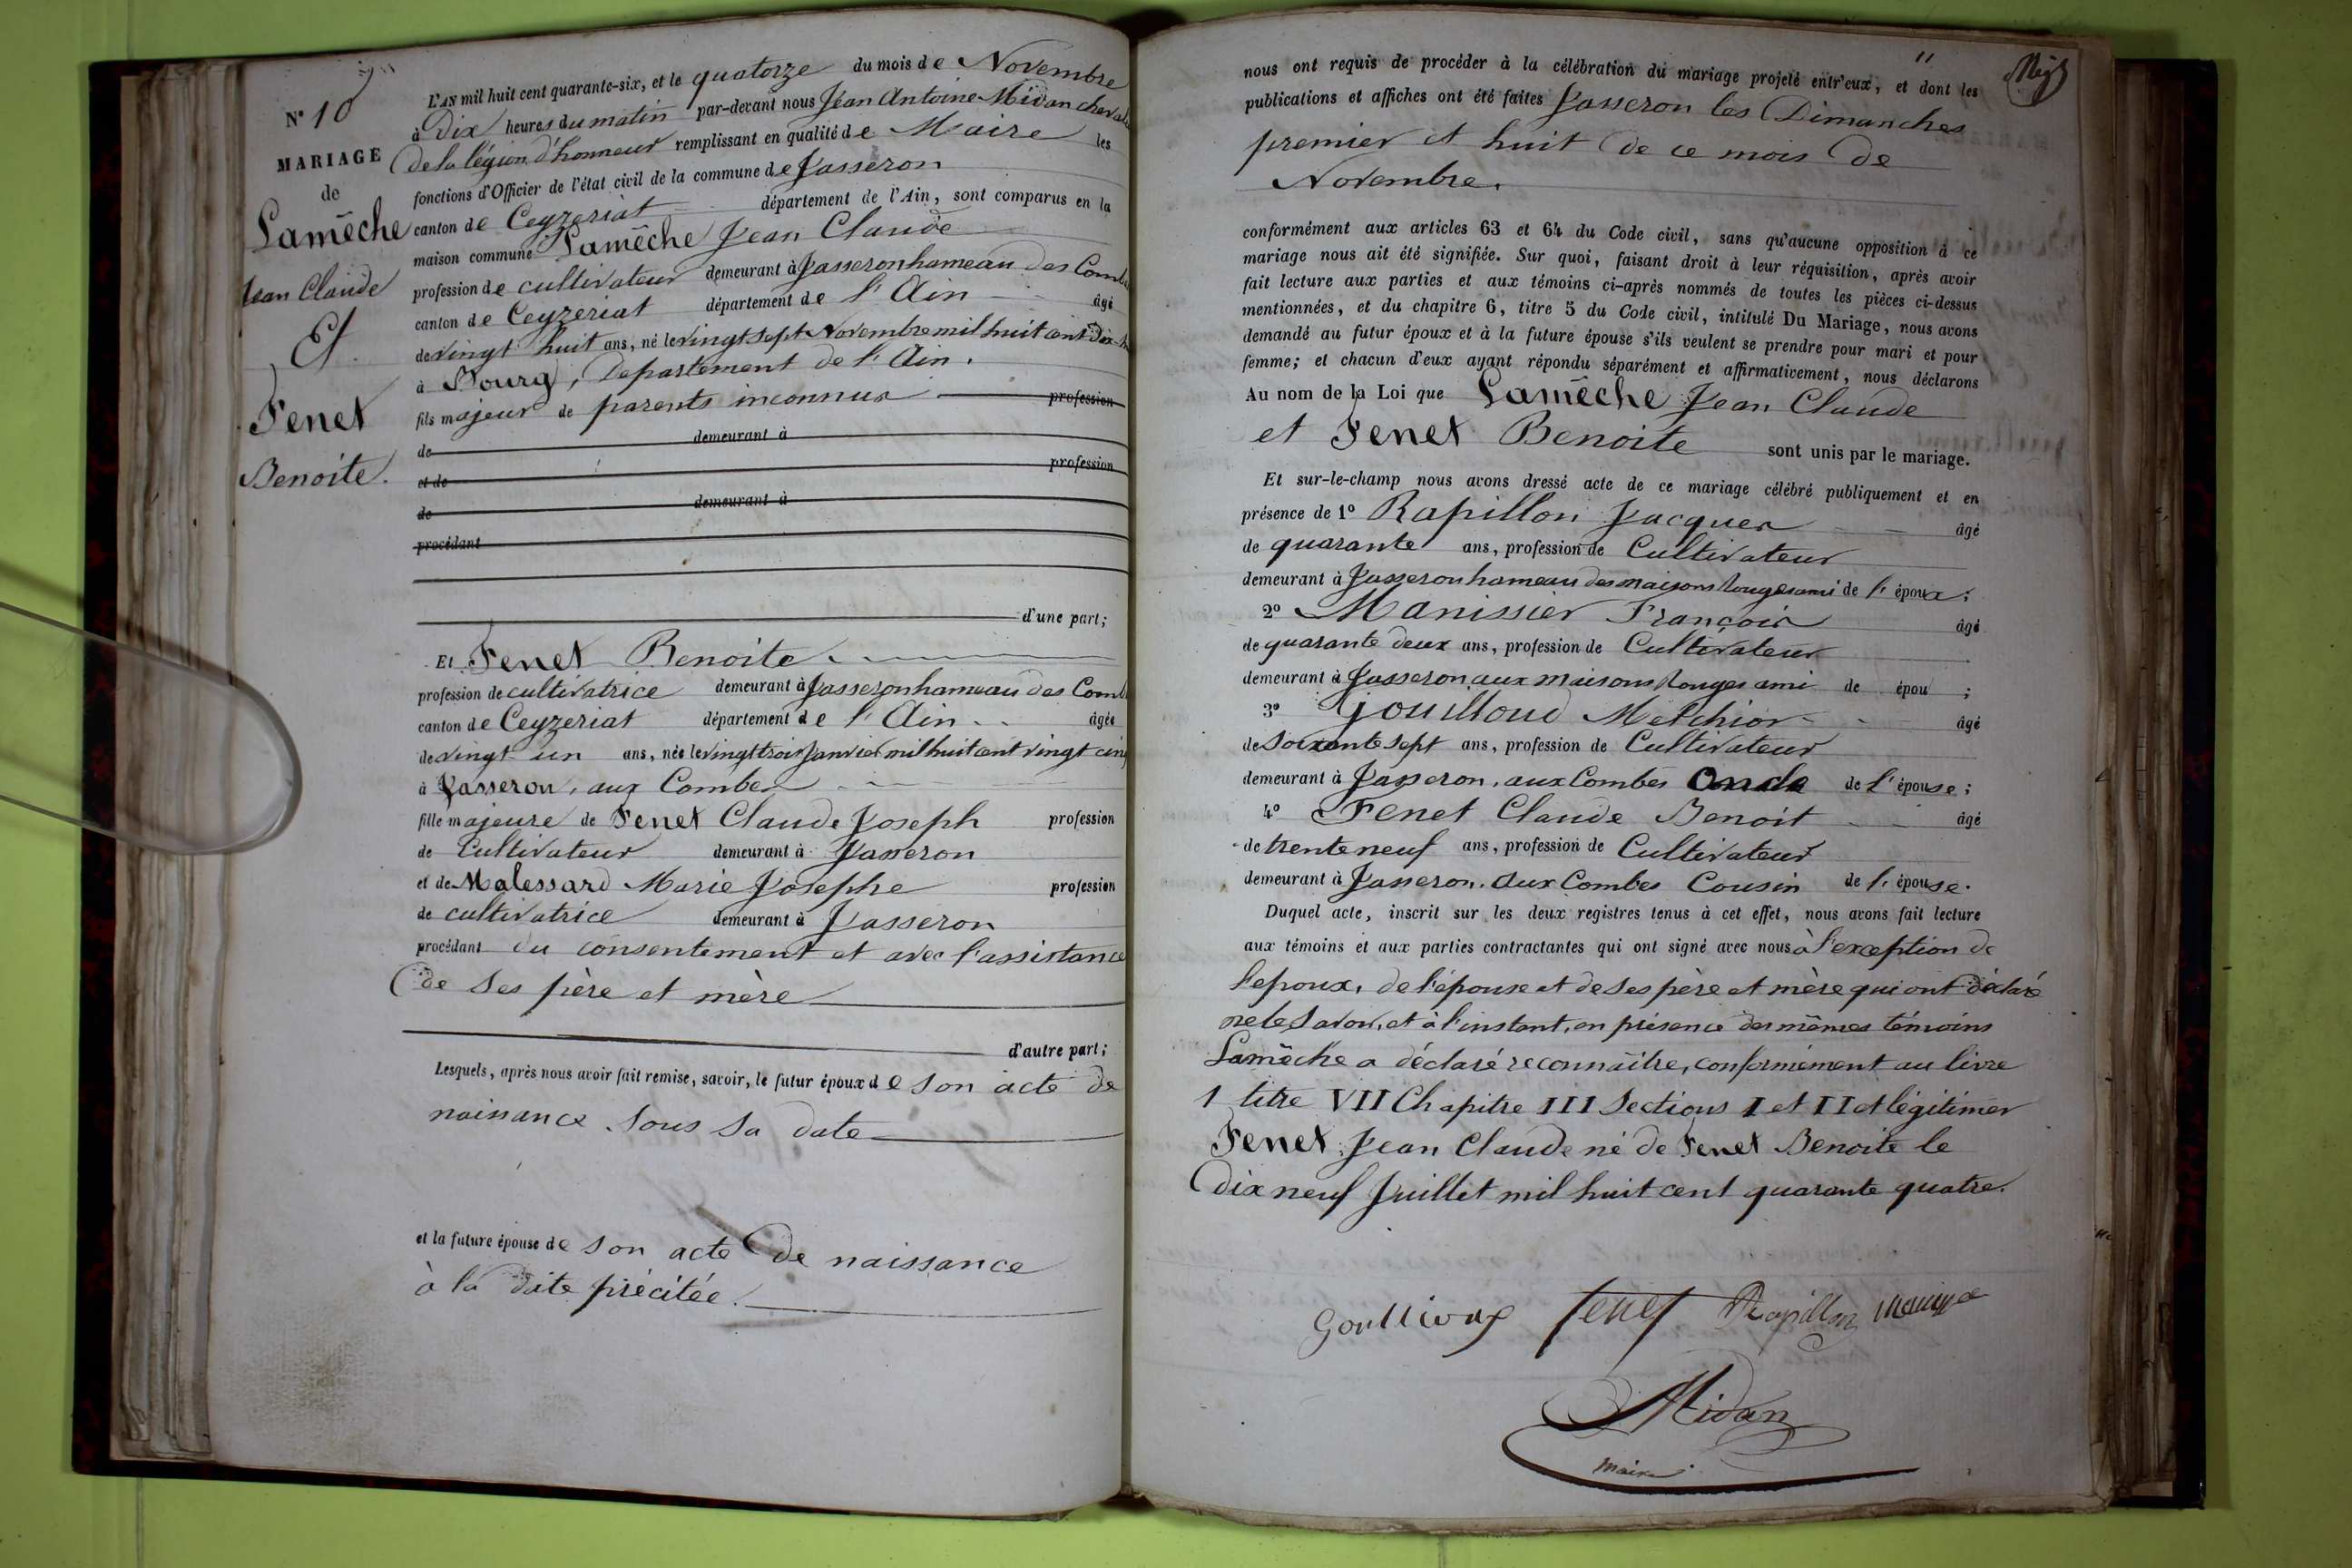 N° 10
MARIAGE
de
Lamêche
Jean Claude
Et
Fenet
Benoite.
L'AN mil huit cent quarante-six, et le quatorze du mois de Novembre
à Dix heures du matin par-devant nous Jean Antoine Midan
de la légion d'honneur remplissant en qualité de Maire les
fonctions d'Officier de l'état civil de la commune de Jasseron
canton de Ceyzeriat département de l'Ain, sont comparus en la
maison commune Lamêche Jean Claude
profession de cultivateur demeurant à Jasseron hameau des
canton de Ceyzeriat département de l'Ain âgé
de vingt huit ans, né le vingt sept Novembre mil huit cent
à Bourg, Département de l'Ain.
fils majeur de parents inconnus profession
de demeurant à
et de profession
de demeurant à
procédant
d'une part;
Et Fenet Benoite
profession de cultivatrice demeurant à Jasseron hameau des
canton de Ceyzeriat département de l'Ain âgée
de vingt un ans, née le vingt trois Janvier mil huit cent vingt cinq
à Jasseron, aux Combes
fille majeure de Fenet Claude Joseph profession
de Cultivateur demeurant à Jasseron
et de Malessard Marie Josephe profession
de cultivatrice demeurant à Jasseron
procédant du consentement et avec l'assistance
de ses père et mère
d'autre part;
Lesquels, après nous avoir fait remise, savoir, le futur époux de son acte de
naissance sous sa date
et la future épouse de son acte de naissance
à la date précitée.
11
nous ont requis de procéder à la célébration du mariage projeté entr'eux, et dont les
publications et affiches ont été faites Jasseron les Dimanches
premier et huit de ce mois de
Novembre.
conformément aux articles 63 et 64 du Code civil, sans qu'aucune opposition à ce
mariage nous ait été signifiée. Sur quoi, faisant droit à leur réquisition, après avoir
fait lecture aux parties et aux témoins ci-après nommés de toutes les pièces ci-dessus
mentionnées, et du chapitre 6, titre 5 du Code civil, intitulé Du Mariage, nous avons
demandé au futur époux et à la future épouse s'ils veulent se prendre pour mari et pour
femme; et chacun d'eux ayant répondu séparément et affirmativement, nous déclarons
Au nom de la Loi que Lamêche Jean Claude
et Fenet Benoite sont unis par le mariage.
Et sur-le-champ nous avons dressé acte de ce mariage célébré publiquement et en
présence de 1° Rapillon Jacques âgé
de quarante ans, profession de Cultivateur
demeurant à Jasseron hameau des maisons Rouges ami de l'époux;
2° Manissier François âgé
de quarante deux ans, profession de Cultivateur
demeurant à Jasseron aux maisons Rouges ami de épou ;
3° Gouilloud Melchior âgé
de soixante sept ans, profession de Cultivateur
demeurant à Jasseron, aux Combes Oncle de l'épouse;
4° Fenet Claude Benoit âgé
de trente neuf ans, profession de Cultivateur
demeurant à Jasseron, aux Combes Cousin de l'épouse.
Duquel acte, inscrit sur les deux registres tenus à cet effet, nous avons fait lecture
aux témoins et aux parties contractantes qui ont signé avec nous à l'exception de
l'époux, de l'épouse et de ses père et mère qui ont déclaré
ne le savoir, et à l'instant, en présence des mêmes témoins
Lamêche a déclaré reconnaître, conformément au livre
1 titre VII Chapitre III Sections I et II et légitimer
Fenet Jean Claude né de Fenet Benoite le
dix neuf Juillet mil huit cent quarante quatre.
fenet Rapillon
Midan
maire